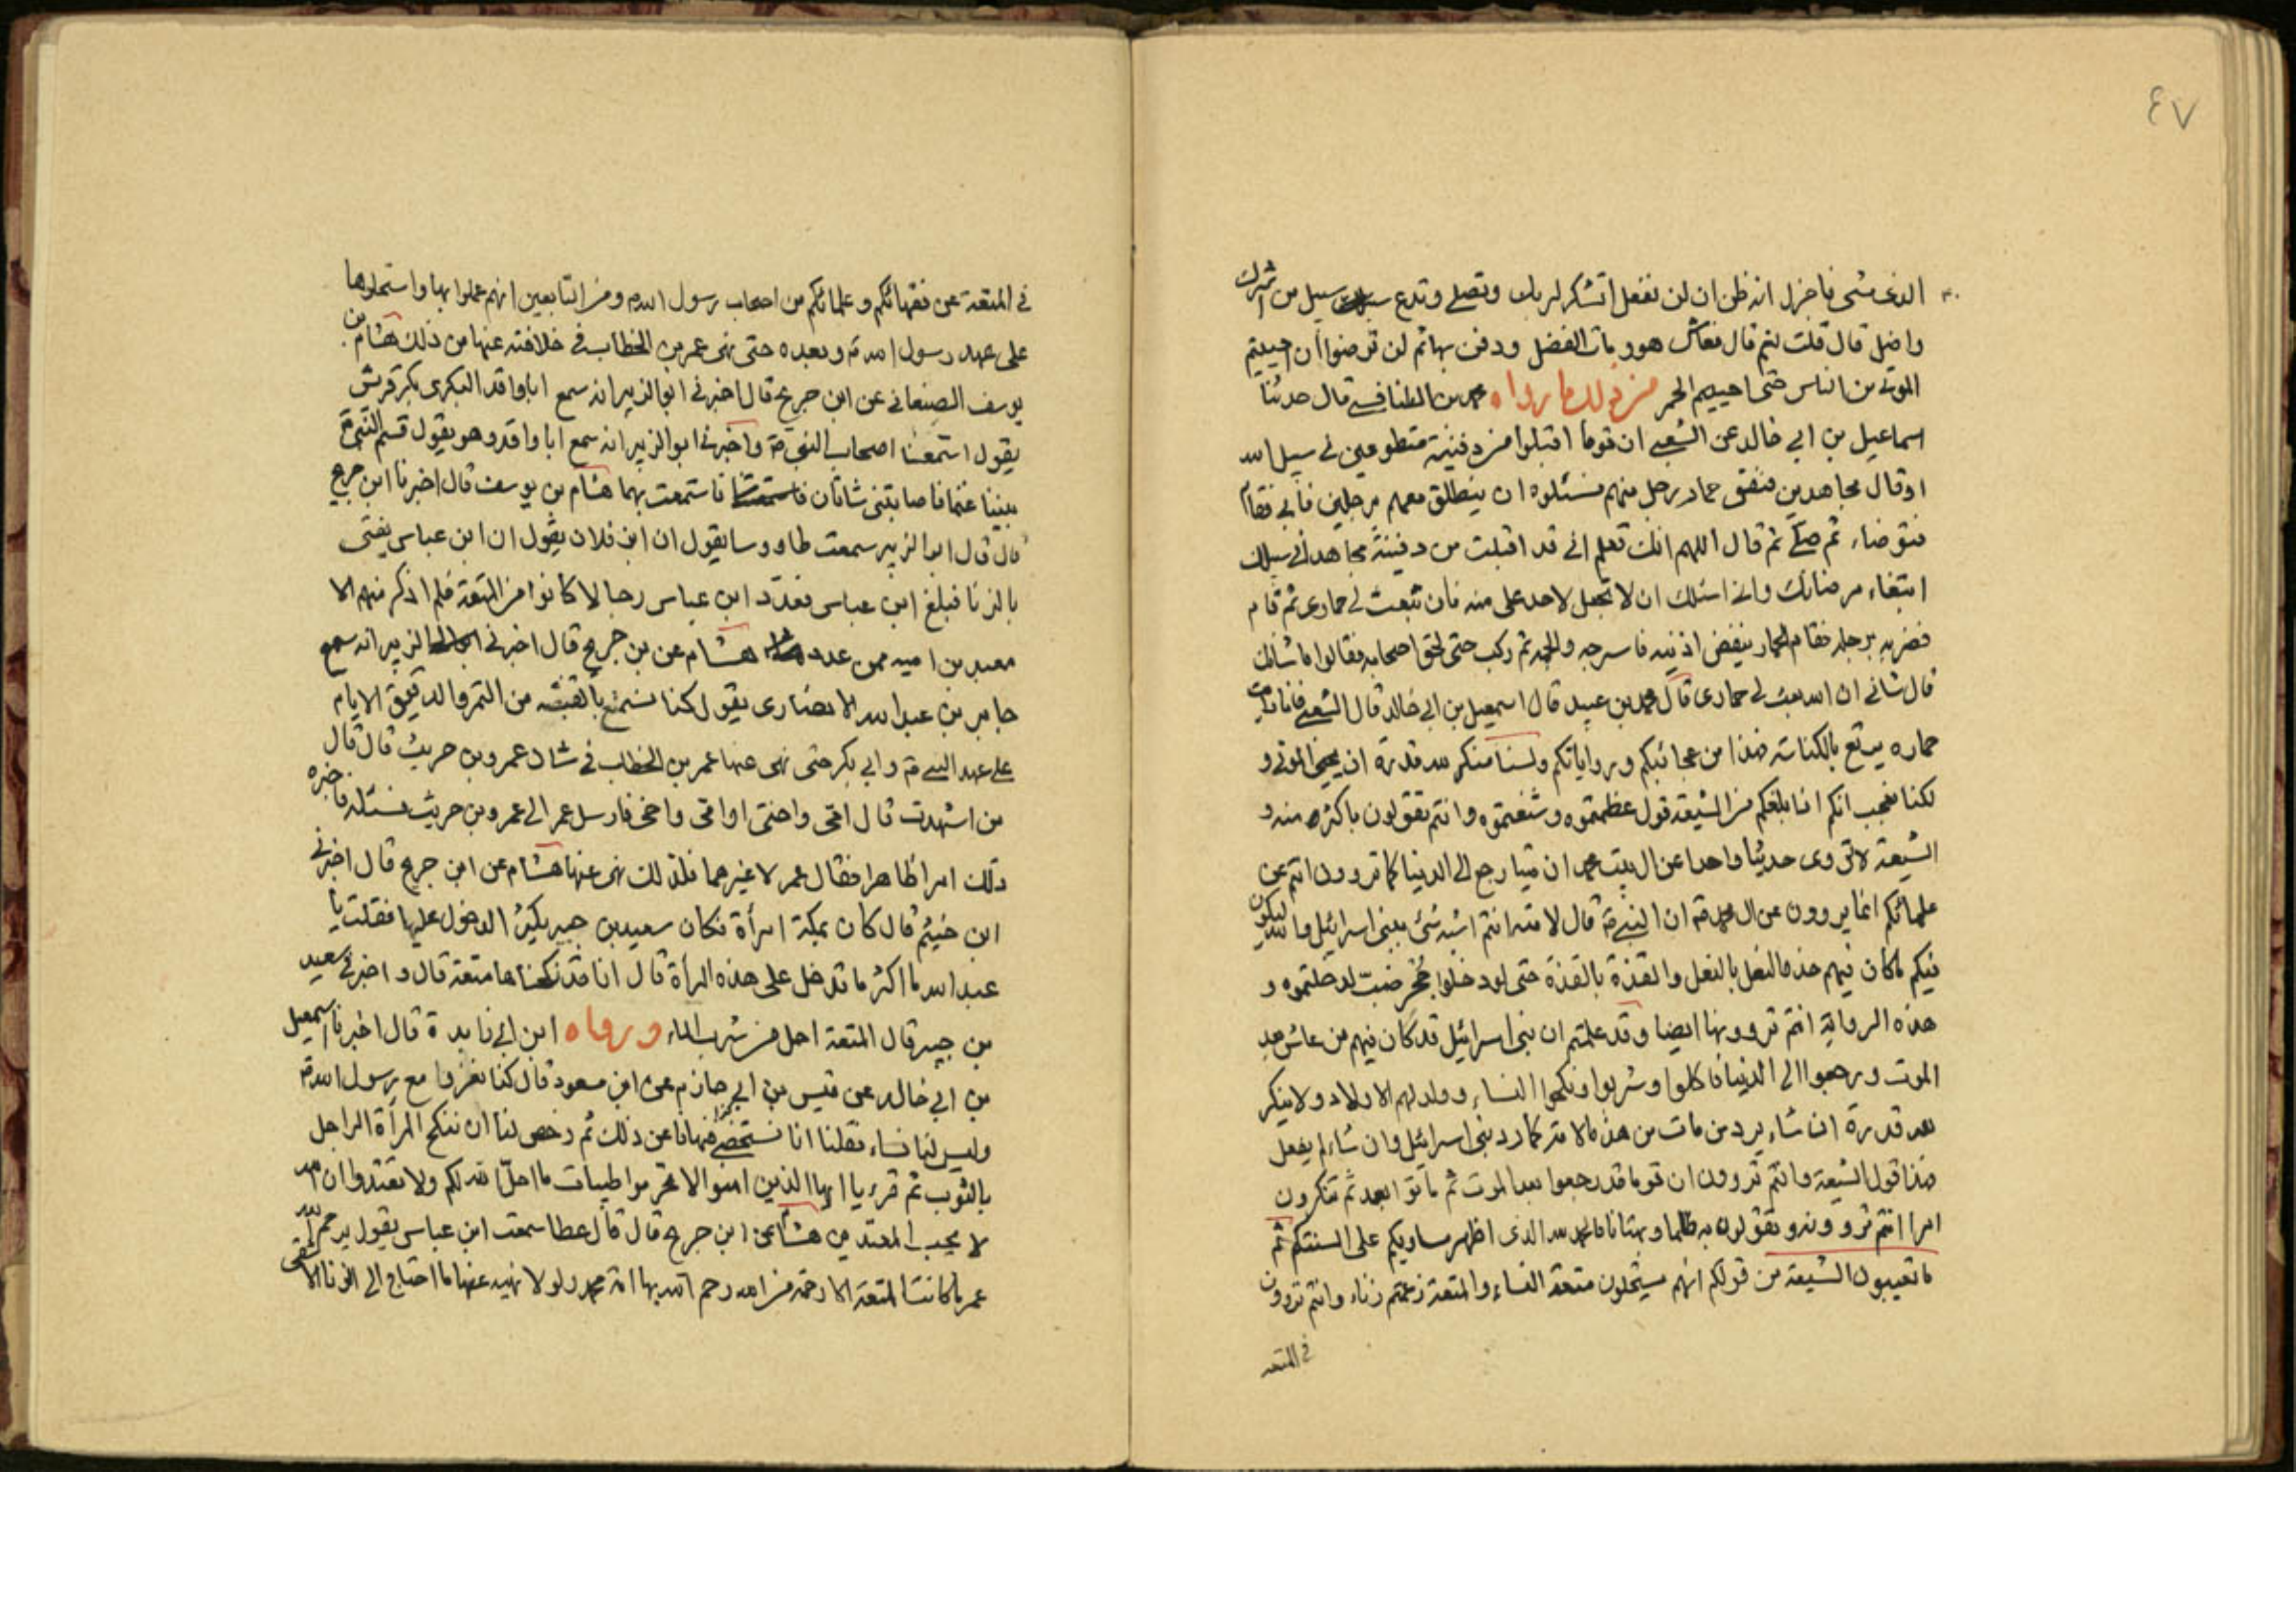 ٤٧
الذى مشى فاخزل انه ظن ان لن نفعل اتشكر لربك وتصلى وتدع سبيل من اشرك
واضل قال قلت نعم قال فعاش هو ومات الفضل ودفن بهاثم لن ترضوا ان احييتم
الموتى من الناس حتى احييتم الحمر من ذلك ما رواه محمد بن الطنافسى قال حدثنا
اسماعيل بن ابى خالد عن الشعبى ان قوما اقبلوا من دفينة متطوعين فى سبيل الله
او قال مجاهدين فنفق حمار رجل منهم فسئلوه ان ينطلق معهم برجلين فابى فقام
فتوضاء ثم صلى ثم قال اللهم انك تعلم انى قد اقبلت من دفينة مجاهدا فى سبيلك
ابتغاء مرضاتك وانى اسئلك ان لا تجعل لاحد على منه فان تبعث لى حمارى ثم قام
فضربه برجله فقام الحمار ينفض اذنيه فاسرجه والجمه ثم ركب حتى لحق اصحابه فقالوا ما شانك
قال شانى ان الله بعث لى حمارى قال محمد بن عبيد قال اسمعيل بن ابى خالد قال الشعبى فانا رايت
حماره يباع بالكناسه فهذا من عجائبكم ورواياتكم ولسنا ننكر لله قدرة ان يحيى الموتى و
لكنا نعجب انكم اذا بلغكم من الشيعة قول عظمتموه وشنعتموه وانتم تقولون باكثر منه و
الشيعة لا تروى حديثا واحدا عن ال بيت محمد ان ميتا رجع الى الدنيا كما تروون انتم عن
علمائكم انما يروون عن ال محمد ص ان النبى ص قال لامته انتم اشبه شئ ببنى اسرائيل والله ليكونن
فيكم ما كان فيهم حذو النعل بالنعل والقذة بالقذة حتى لو دخلوا جحر ضب لدخلتموه و
هذه الرواية انتم تروونها ايضا وقد علمتم ان بنى اسرائيل قد كان فيهم من عاش بعد
الموت ورجعوا الى الدنيا فاكلوا وشربوا ونكحوا النساء وولد لهم الاولاد ولا ينكر
لله قدرة ان شاء يرد من مات من هذه الامة كما رد بنى اسرائيل وان شاء لم يفعل
فهذا قول الشيعة وانتم تروون ان قوما قد رجعوا بعد الموت ثم ماتوا بعد ثم تنكرون
امرا انتم تروونه وتقولون به ظلما وبهتانا فالحمد لله الذى اظهر مساويكم على السنتكم ثم
ما تعيبون الشيعة من قولكم انهم يستحلون متعة النساء والمتعة زعمتم زناء وانتم تروون
فى المتعه
فى المتعة عن فقهائكم وعلمائكم من اصحاب رسول الله ص ومن التابعين انهم عملوا بها واستحلوها
على عهد رسول الله ص وبعده حتى نهى عمر بن الخطاب فى خلافته عنها من ذلك هشام بن
يوسف الصنعانى عن ابن جريح قال اخبرنى ابو الزبير انه سمع ابا واقد البكرى بكر قريش
يقول استمتعنا اصحاب النبى ص واخبرنى ابو الزبير انه سمع ابا واقد وهو يقول قسم النبى ص
بيننا غنما فاصابتنى شاتان فاستمتعت بهما هشام بن يوسف قال اخبرنا ابن جريح
قال قال ابو الزبير سمعت طاووسا يقول ان ابن فلان يقول ان ابن عباس يفتى
بالزنا فبلغ ابن عباس فعدد ابن عباس رجالا كانوا من المتعة فلم اذكر منهم الا
معبد بن اميه ممن عدد هشام عن بن جريح قال اخبرنى ابو الزبير انه سمع
جابر بن عبد الله الانصارى يقول كنا نستمتع بالقبضه من التمر والدقيق الايام
على عهد النبى ص وابى بكر حتى نهى عنها عمر بن الخطاب فى شان عمرو بن حريث قال قال
من اشهدت قال امى واختى او امى واخى فارسل عمر الى عمرو بن حريث فسئله فاخبره
ذلك امرا ظاهرا فقال عمر لا غيرهما فلذلك نهى عنها هشام عن ابن جريح قال اخبرنى
ابن خثيم قال كان بمكة امرأة فكان سعيد بن جبير يكثر الدخول عليها فقلت يا
عبد الله ما اكثر ما تدخل على هذه المرأة قال انا قد نكحناها متعة قال واخبرنى سعيد
بن جبير قال المتعة احل من شرب الماء ورواه ابن ابى زايدة قال اخبرنا اسمعيل
بن ابى خالد عن قيس بن ابى حازم عن ابن مسعود قال كنا نغزوا مع رسول الله ص
وليس لنا نساء فقلنا انا نستخصى فنهانا عن ذلك ثم رخص لنا ان ننكح المرأة الراجل
بالثوب ثم قرء يا ايها الذين امنوا لا تحرموا طيبات ما احل الله لكم ولا تعتدوا ان الله
لا يحب المعتدين هشام عن ابن جريح قال قال عطا سمعت ابن عباس يقول يرحم الله
عمر ما كانت المتعة الا رحمة من الله رحم الله بها امة محمد ولولا نهيه عنها ما احتاج الى الزنا الا شقى